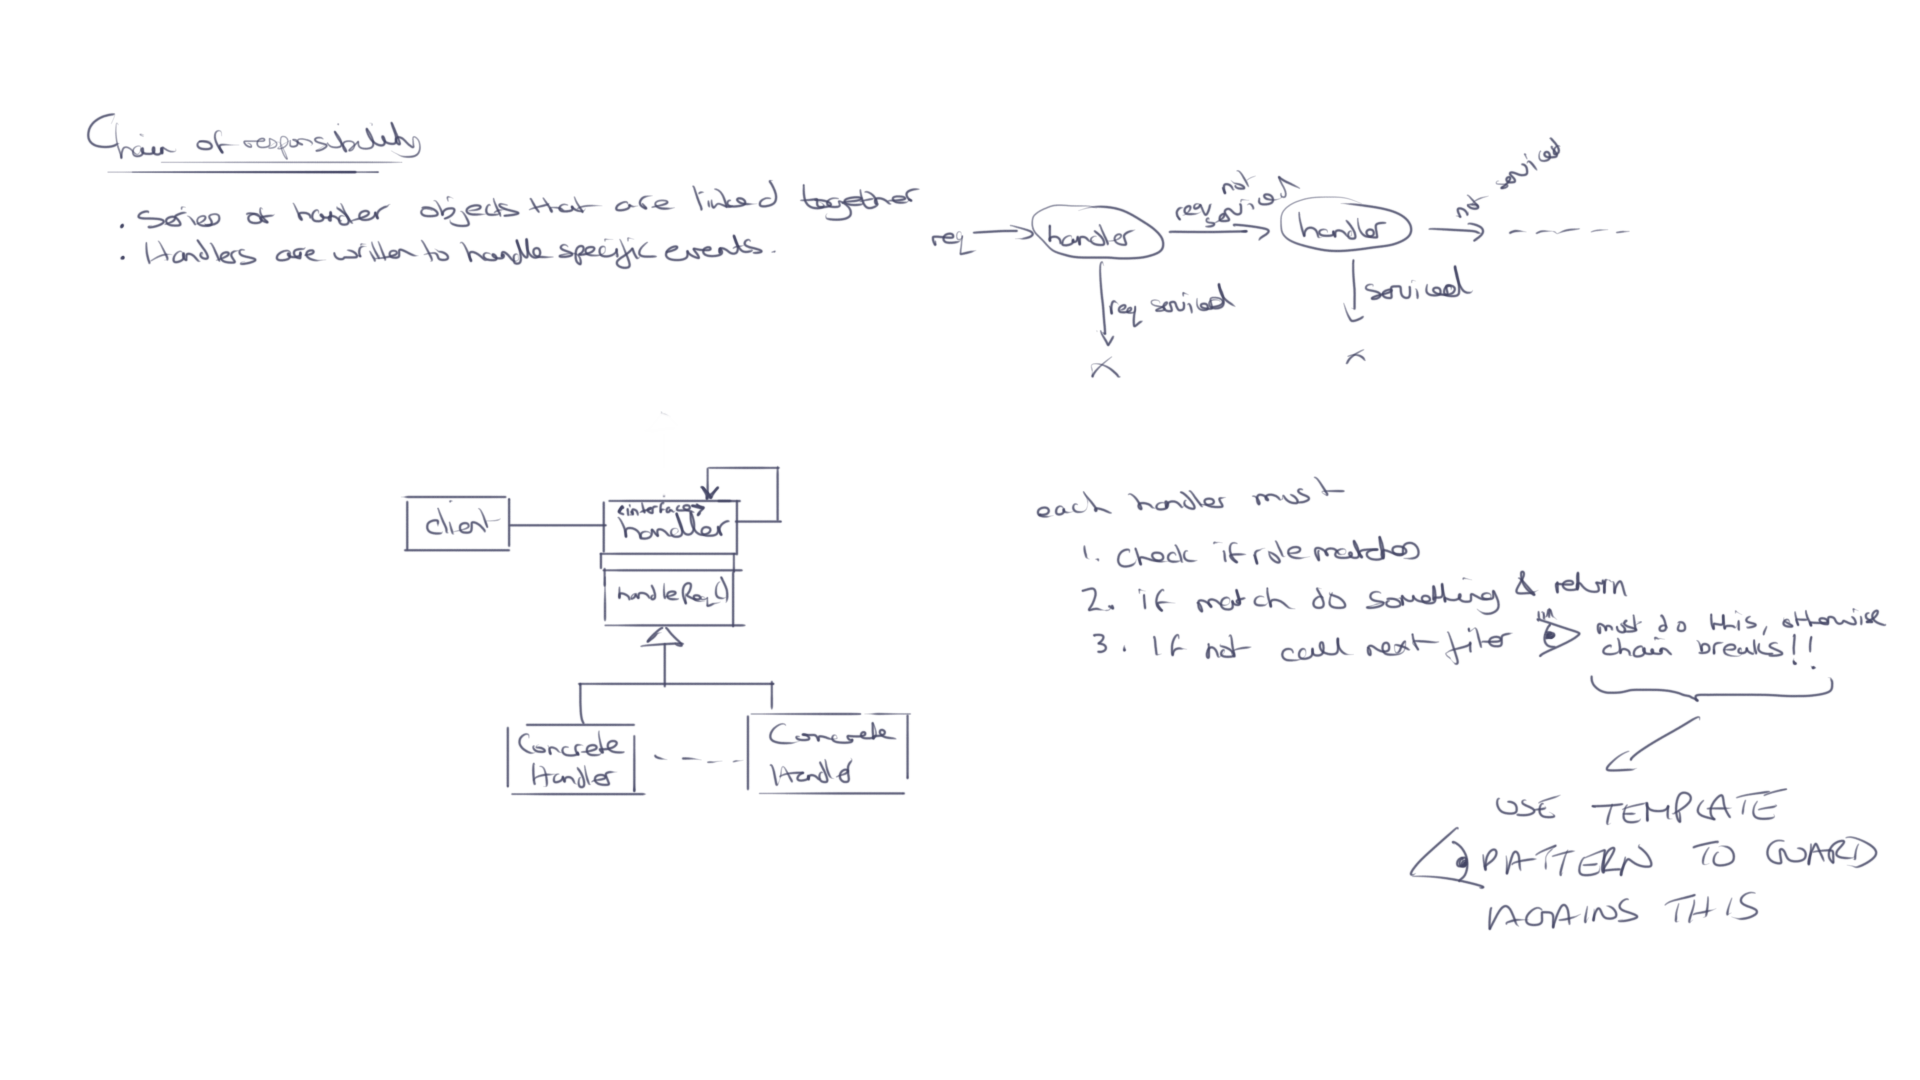 Chain of responsibility
· Series of handler objects that are linked together
· Handlers are written to handle specific events.
req
handler
req not serviced
handler
not serviced
req serviced
serviced
x
x
client
<interface>
handler
handleReq()
Concrete
Handler
Concrete
Handler
each handler must
1. Check if role matches
2. if match do something & return
3. If not call next filter
must do this, otherwise
chain breaks!!
USE TEMPLATE
PATTERN TO GUARD
AGAINS THIS